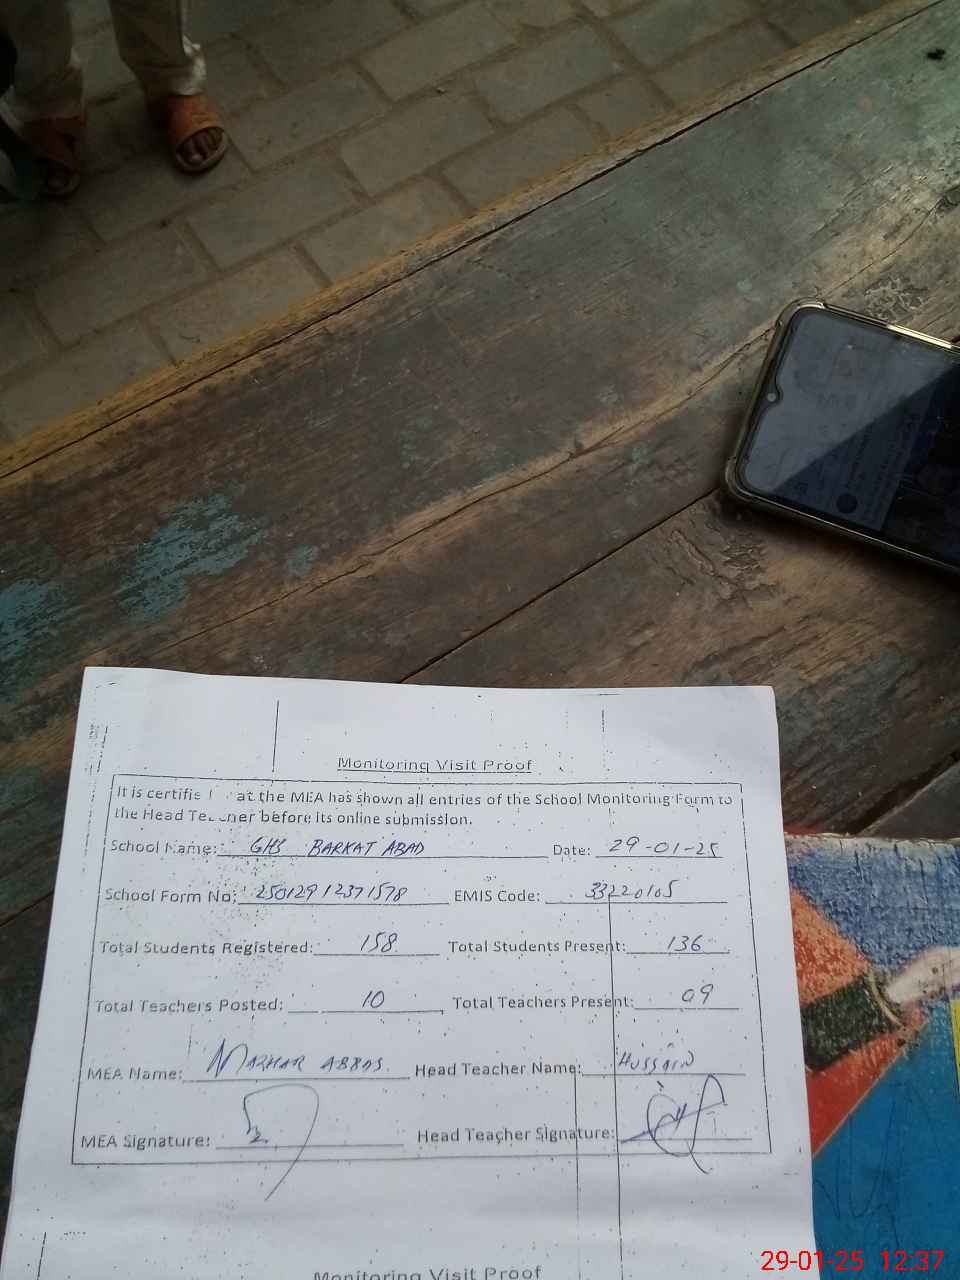 Monitoring Visit Proof
It is certifie at the MEA has shown all entries of the School Monitoring Form to
the Head Teacher before its online submission.
School Name: GHS BARKAT ABAD Date: 29-01-25
School Form No: 25012912371578 EMIS Code: 33220105
Total Students Registered: 158 Total Students Present: 136
Total Teachers Posted: 10 Total Teachers Present: 09
MEA Name: MAZHAR ABBAS Head Teacher Name: HUSSAIN
MEA Signature: Head Teacher Signature:
Monitoring Visit Proof
29-01-25 12:37